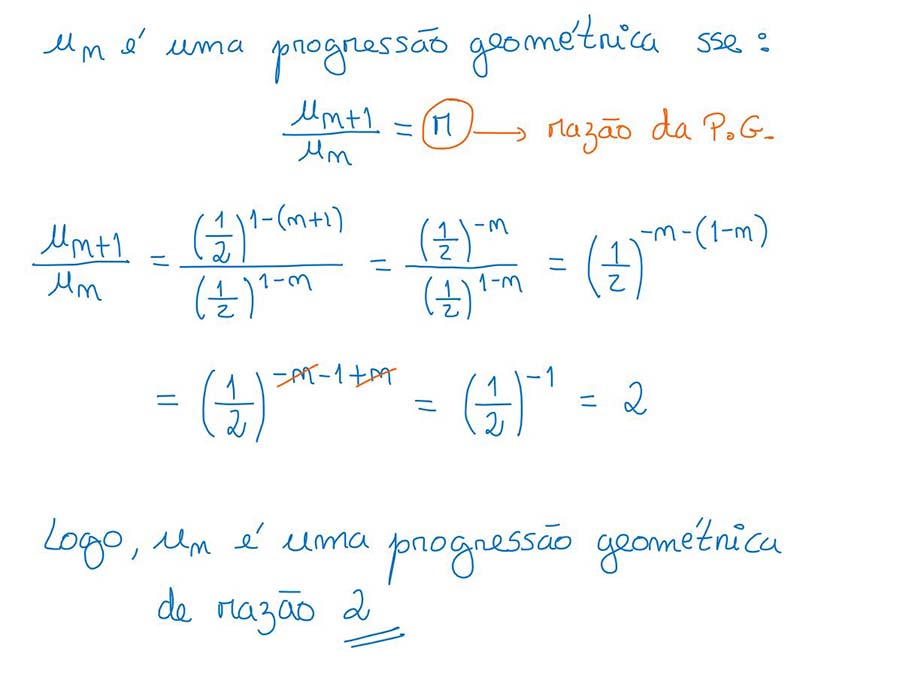 uₙ é uma progressão geométrica sse:
uₙ₊₁/uₙ = r → razão da P.G.
uₙ₊₁/uₙ = (1/2)^(1-(n+1)) / (1/2)^(1-n) = (1/2)^(-n) / (1/2)^(1-n) = (1/2)^(-n-(1-n))
= (1/2)^(-n-1+n) = (1/2)^(-1) = 2
Logo, uₙ é uma progressão geométrica
de razão 2